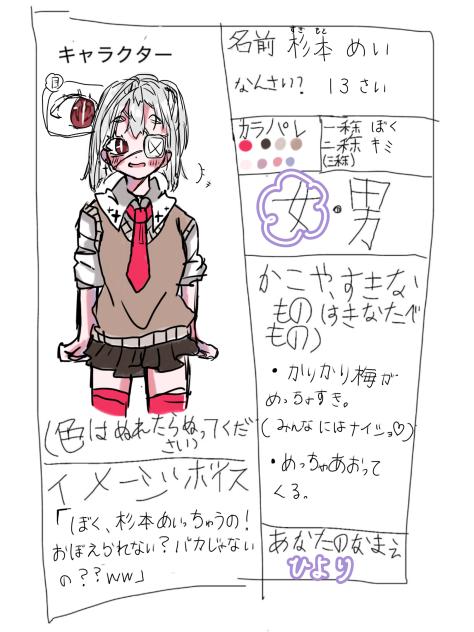 キャラクター
目
(色はぬれたらぬってくだ
さい)
イメージボイス
「ぼく、杉本めいっちゅうの!
おぼえられない?バカじゃない
の??ww」
名前 杉本 めい
すぎ もと
なんさい? 13さい
カラパレ
一称 ぼく
二称 キミ
(三称)
女・男
かこや、すきな
もの(はきなたべ
もの)
・かりかり梅が
めっちょすき。
(みんなにはナイショ♡)
・めっちゃあおって
くる。
あなたのなまえ
ひより